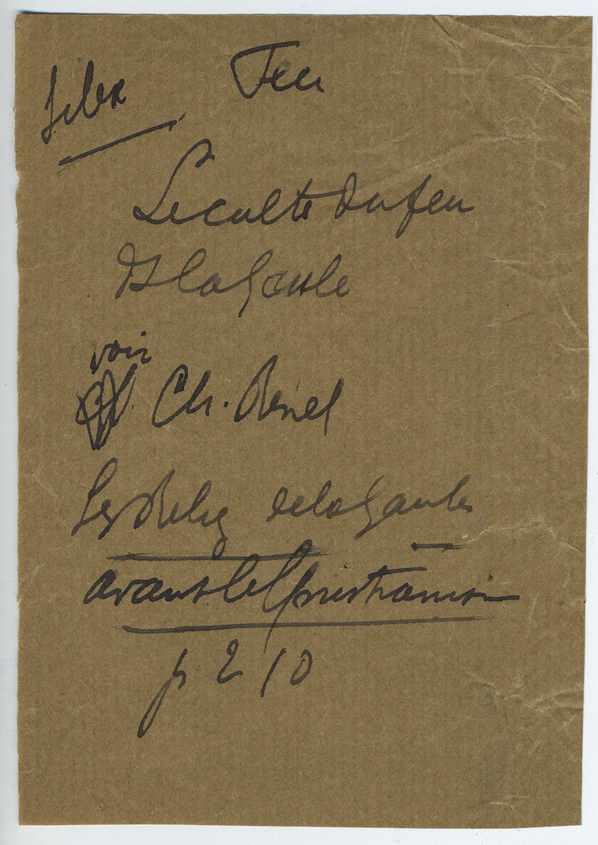 Silex Feu
Le culte du feu
ds la Gaule
voir
Ch. Renel
Les Relig de la Gaule
avant le Christianism
p 210